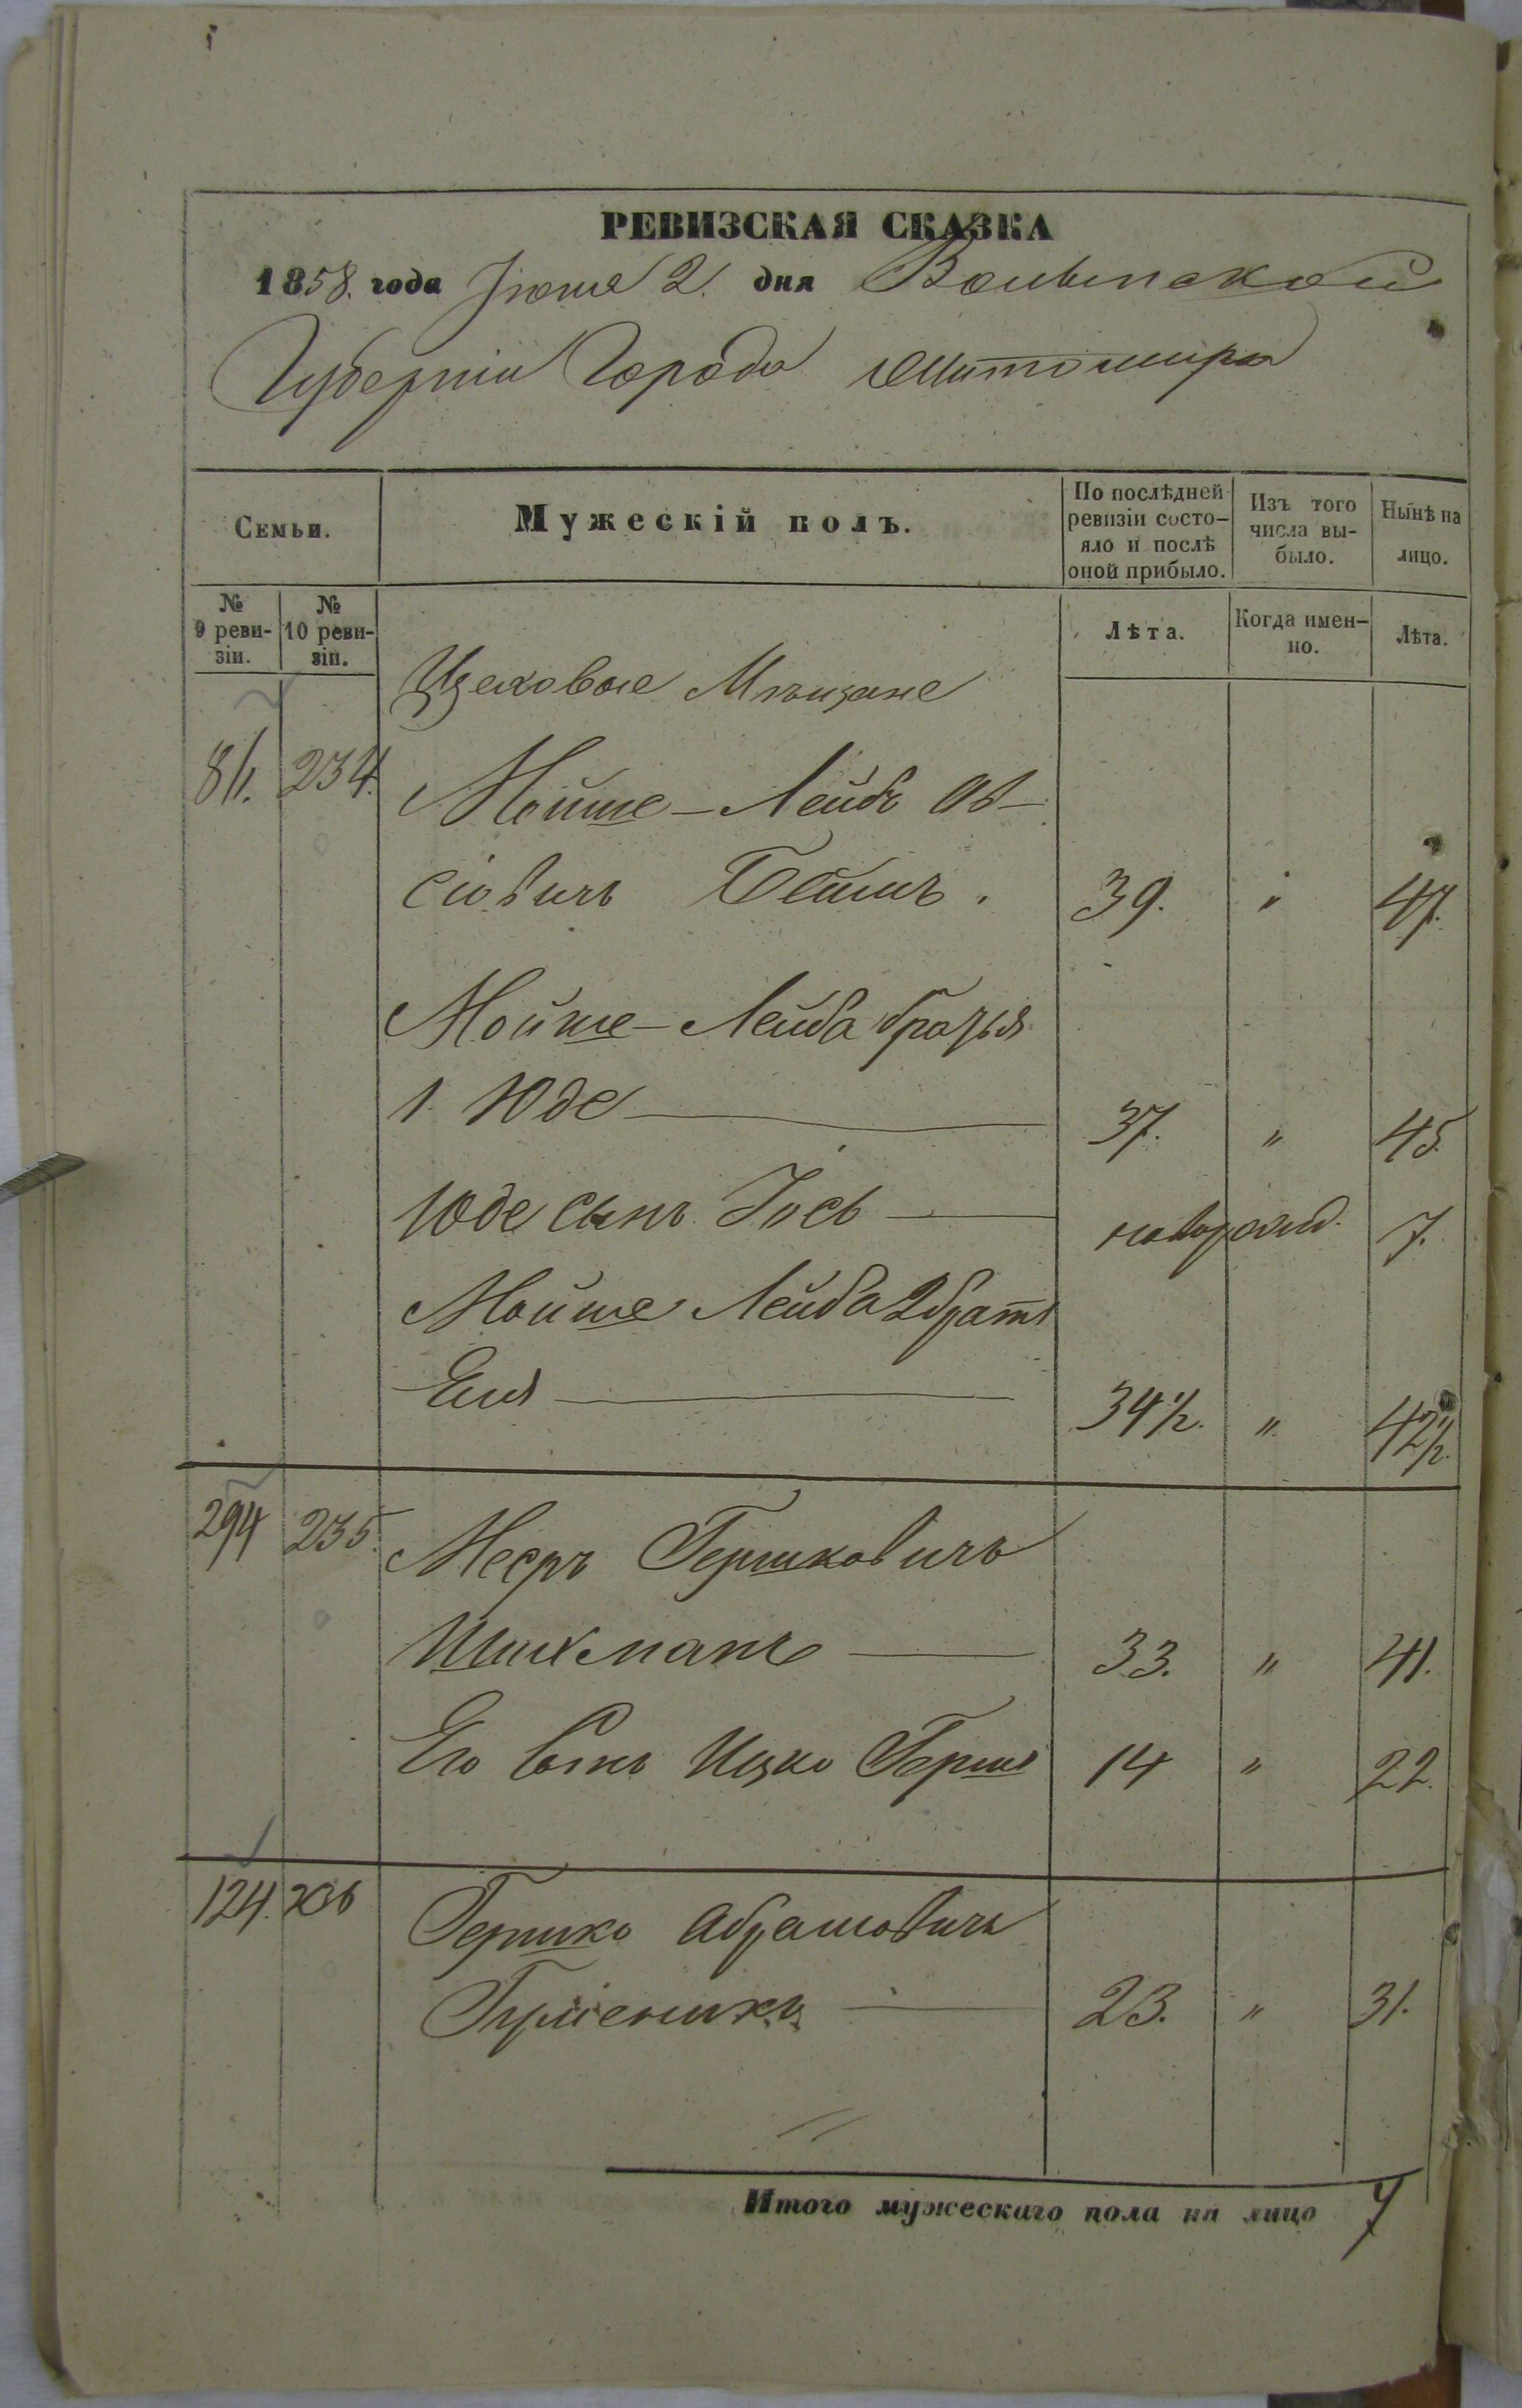 РЕВИЗСКАЯ СКАЗКА
1858. года Іюня 2. дня Волынской
Губерніи Города Житомира
Семьи.
Мужескій полъ.
По послѣдней ревизіи состо-
яло и послѣ оной прибыло.
Изъ того числа вы-
было.
Нынѣ на лицо.
№ 9 реви-
зіи.
№ 10 реви-
зіи.
Лѣта.
Когда имен-
но.
Лѣта.
Цеховые Мѣщане
81. 234. Мойше-Лейбъ Ов-
сіовичъ 39. " 47.
Мойше-Лейба братья
1. Юде 37. " 45.
Юде сынъ Іось новорожд. 7.
Мойше Лейба 2 братъ
Еля 34½. " 42½.
294 235. Мееръ Гершковичъ
Шихманъ 33. " 41.
Его Сынъ Ицко Гершъ 14 " 22.
124. 236 Гершко Абрамовичъ
23. " 31.
Итого мужескаго пола на лицо 7